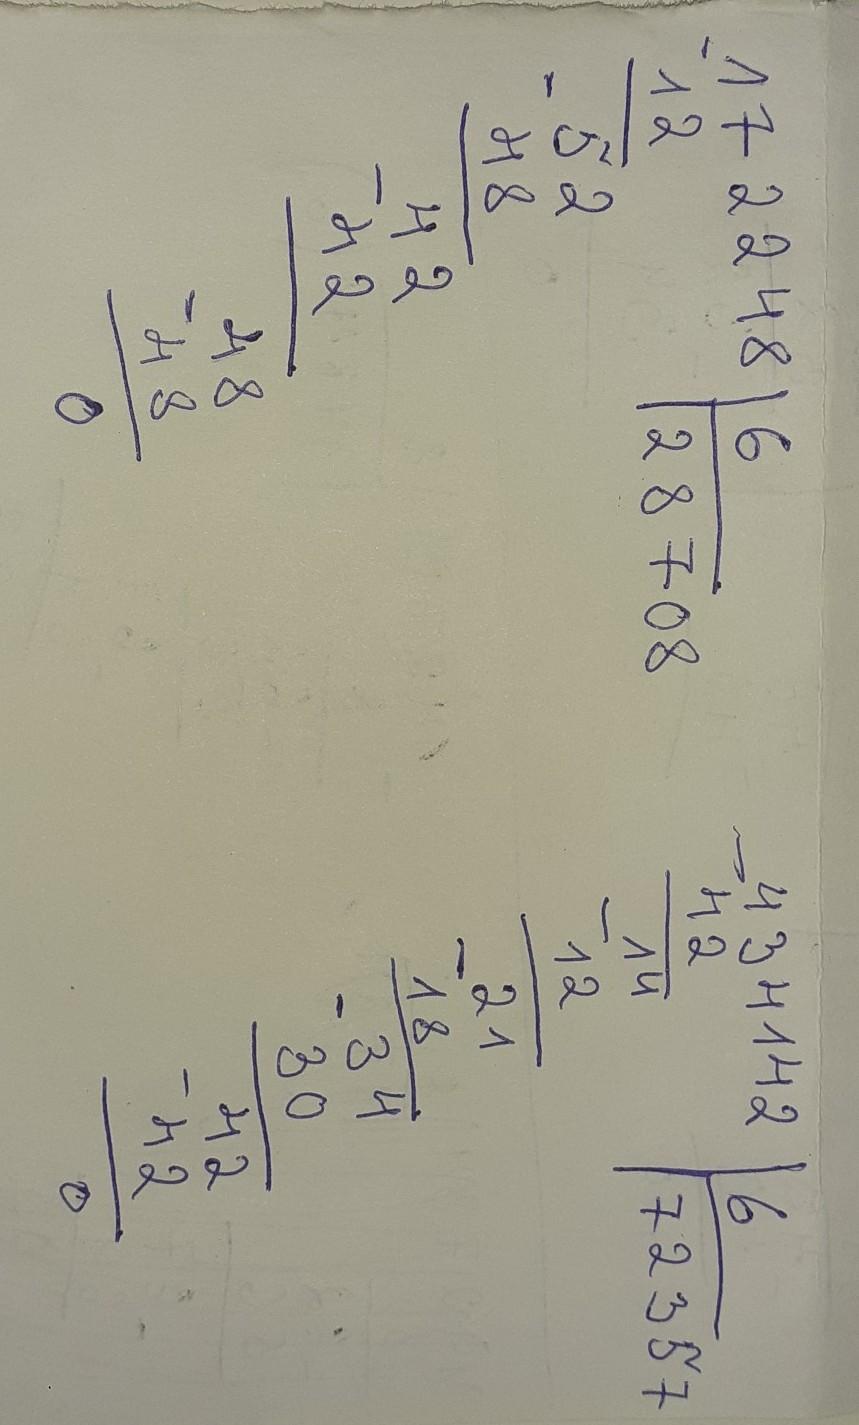 -172248 | 6
12
28708
-52
48
42
-42
48
-48
0
-434142 | 6
42
72357
14
-12
-21
18
-34
30
42
-42
0